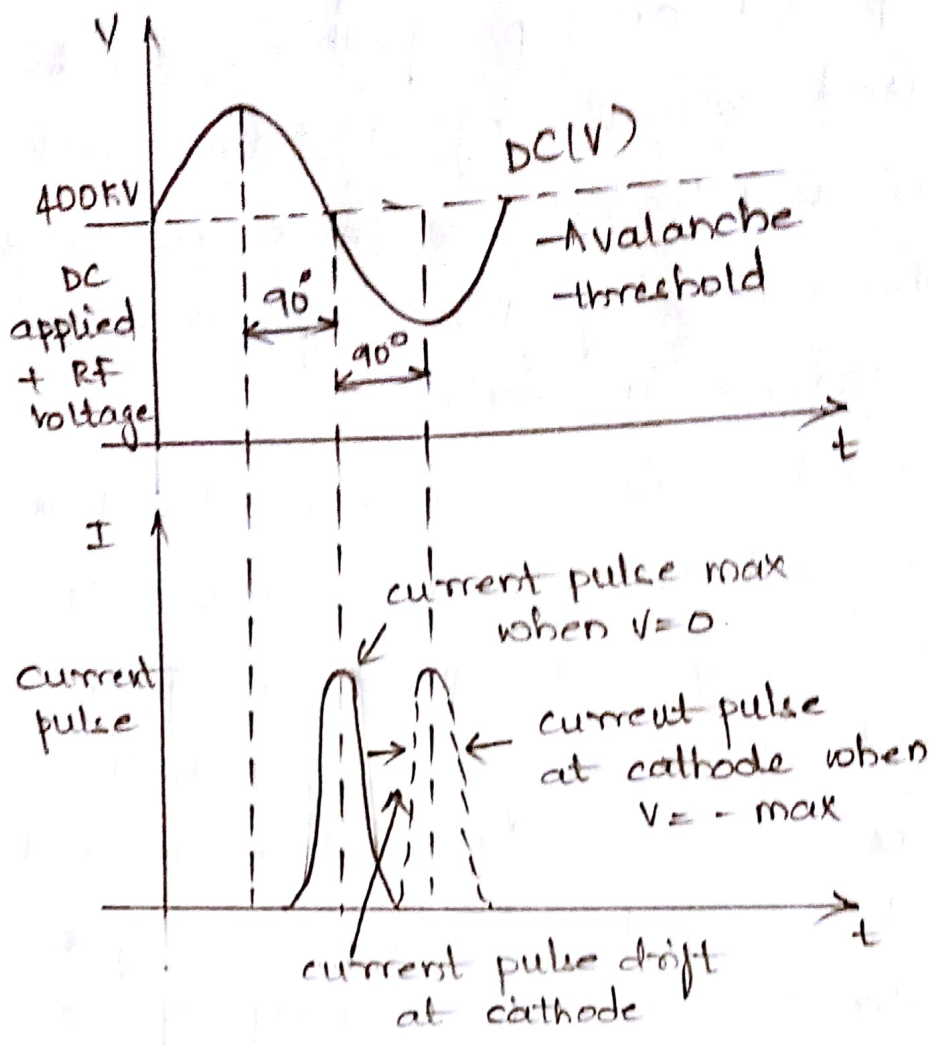 V
DC(V)
400KV
-Avalanche
-threshold
DC
applied
+ RF
voltage
90°
90°
t
I
current pulse max
when V=0.
current
pulse
current pulse
at cathode when
V = - max
t
current pulse drift
at cathode